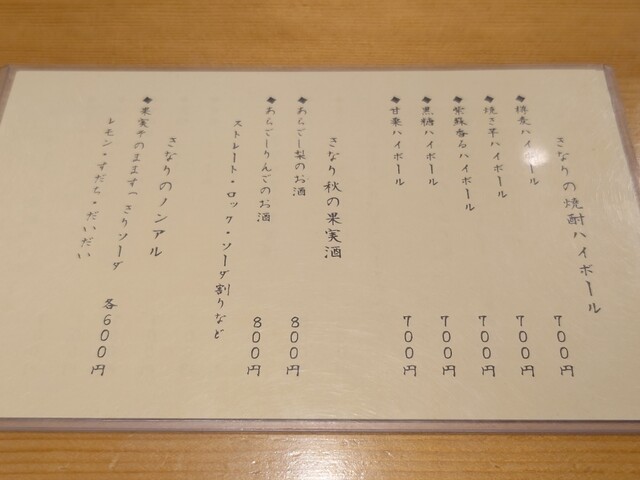 さなりの焼酎ハイボール
◆樽麦ハイボール 700円
◆焼き芋ハイボール 700円
◆紫蘇香るハイボール 700円
◆黒糖ハイボール 700円
◆甘栗ハイボール 700円
さなり秋の果実酒
◆あらごーし梨のお酒 800円
◆あらごーしりんごのお酒 800円
ストレート・ロック・ソーダ割りなど
さなりのノンアル
◆果実そのまますっきりソーダ 各600円
レモン・すだち・だいだい